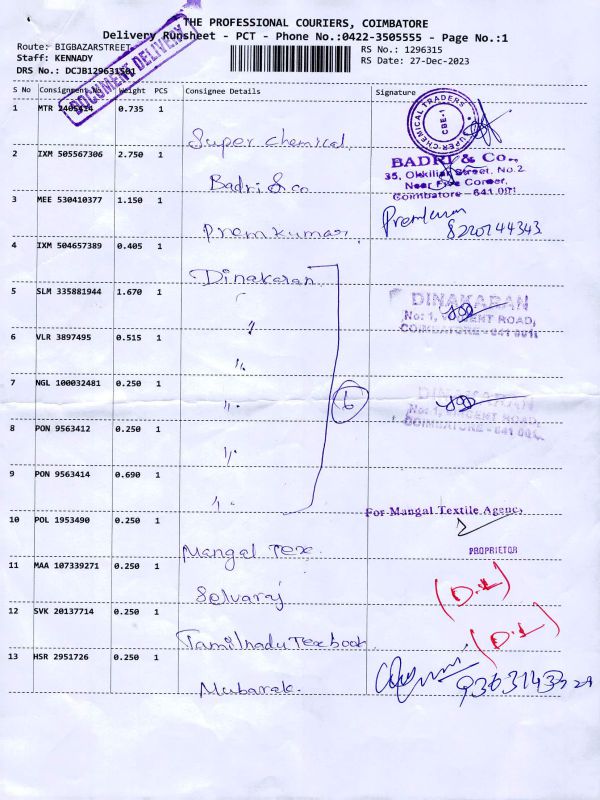 THE PROFESSIONAL COURIERS, COIMBATORE
Delivery Runsheet - PCT - Phone No.:0422-3505555 - Page No.:1
Route: BIGBAZARSTREET
Staff: KENNADY
DRS No.: DCJB129631501
RS No.: 1296315
RS Date: 27-Dec-2023
DOCUMENT DELIVERY
S No Consignment No Weight PCS Consignee Details Signature
1 MTR 2405414 0.735 1 Super chemical
SUPER CHEMICAL TRADERS CBE-1
2 IXM 505567306 2.750 1 Badri & co
BADRI & Co.,
35, Okkiliar Street, No.2
Near Five Corner,
Coimbatore - 641 001
3 MEE 530410377 1.150 1 Premkumar
8220744343
4 IXM 504657389 0.405 1 Dinakaran
5 SLM 335881944 1.670 1 "
DINAKARAN
No: 1, VINCENT ROAD,
COIMBATORE - 641 001.
6 VLR 3897495 0.515 1 "
7 NGL 100032481 0.250 1 "
6
DINAKARAN
No: 1, VINCENT ROAD,
COIMBATORE - 641 001.
8 PON 9563412 0.250 1 "
9 PON 9563414 0.690 1 "
10 POL 1953490 0.250 1 Mangal Tex
For Mangal Textile Agency
PROPRIETOR
11 MAA 107339271 0.250 1 Selvaraj
(D.L)
12 SVK 20137714 0.250 1 Tamilnadu Texbook
(D.L)
13 HSR 2951726 0.250 1 Mubarak.